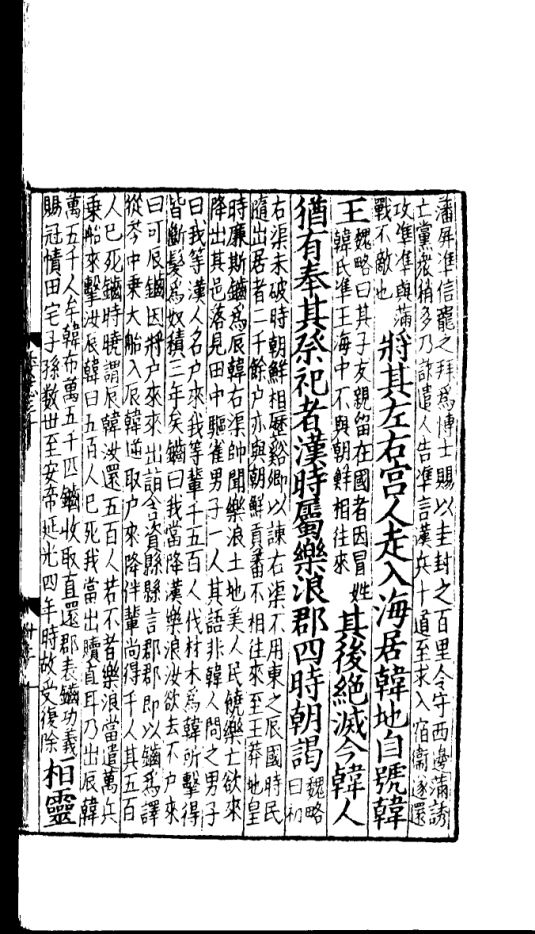 藩屏準信寵之拜爲博士賜以圭封之百里令守西邊滿誘
亡黨衆稍多乃詐遣人告準言漢兵十道至求入宿衞遂還
攻準準與滿
戰不敵也
將其左右宮人走入海居韓地自號韓
王
魏略曰其子友親留在國者因冒姓
韓氏準王海中不與朝鮮相往來
其後絕滅今韓人
猶有奉其祭祀者漢時屬樂浪郡四時朝謁
魏略
曰初
右渠未破時朝鮮相歷谿卿以諫右渠不用東之辰國時民
隨出居者二千餘戶亦與朝鮮貢蕃不相往來至王莽地皇
時廉斯鑡爲辰韓右渠帥聞樂浪土地美人民饒樂亡欲來
降出其邑落見田中驅雀男子一人其語非韓人問之男子
曰我等漢人名戶來我等輩千五百人伐材木爲韓所擊得
皆斷髮爲奴積三年矣鑡曰我當降漢樂浪汝欲去不戶來
曰可辰鑡因將戶來來出詣含資縣縣言郡郡即以鑡爲譯
從芩中乘大船入辰韓逆取戶來降伴輩尚得千人其五百
人已死鑡時曉謂辰韓汝還五百人若不者樂浪當遣萬兵
乘船來擊汝辰韓曰五百人已死我當出贖直耳乃出辰韓
萬五千人牟韓布萬五千匹鑡收取直還郡表鑡功義
賜冠幘田宅子孫數世至安帝延光四年時故受復除
桓靈